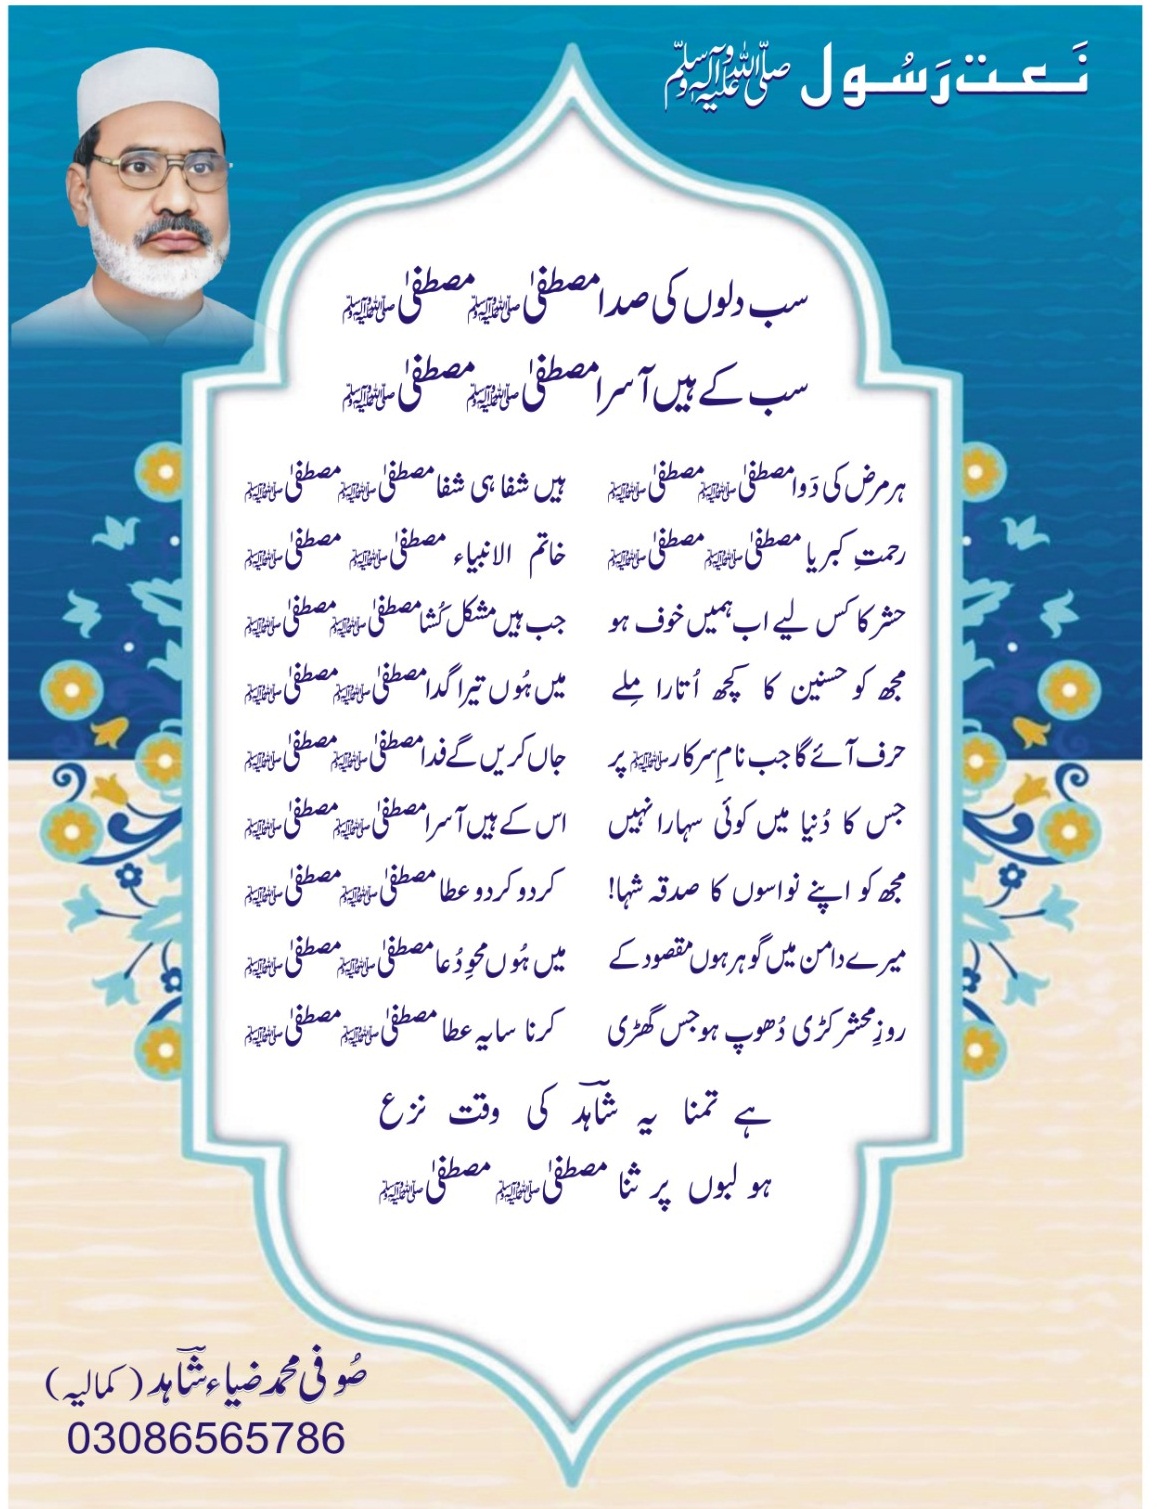 نَعت رَسُول صلی اللہ علیہ وآلہ وسلم
سب دلوں کی صدا مصطفیٰ ﷺ مصطفیٰ ﷺ
سب کے ہیں آسرا مصطفیٰ ﷺ مصطفیٰ ﷺ
ہر مرض کی دَوا مصطفیٰ ﷺ مصطفیٰ ﷺ ہیں شفا ہی شفا مصطفیٰ ﷺ مصطفیٰ ﷺ
رحمتِ کبریا مصطفیٰ ﷺ مصطفیٰ ﷺ خاتم الانبیاء مصطفیٰ ﷺ مصطفیٰ ﷺ
حشر کا کس لیے اب ہمیں خوف ہو جب ہیں مشکل کُشا مصطفیٰ ﷺ مصطفیٰ ﷺ
مجھ کو حسنین کا کچھ اُتارا مِلے میں ہُوں تیرا گدا مصطفیٰ ﷺ مصطفیٰ ﷺ
حرف آئے گا جب نامِ سرکار ﷺ پر جاں کریں گے فدا مصطفیٰ ﷺ مصطفیٰ ﷺ
جس کا دُنیا میں کوئی سہارا نہیں اس کے ہیں آسرا مصطفیٰ ﷺ مصطفیٰ ﷺ
مجھ کو اپنے نواسوں کا صدقہ شہا! کردو کردو عطا مصطفیٰ ﷺ مصطفیٰ ﷺ
میرے دامن میں گوہر ہوں مقصود کے میں ہُوں محوِ دُعا مصطفیٰ ﷺ مصطفیٰ ﷺ
روزِ محشر کڑی دُھوپ ہو جس گھڑی کرنا سایہ عطا مصطفیٰ ﷺ مصطفیٰ ﷺ
ہے تمنا یہ شاہدؔ کی وقت نزع
ہو لبوں پر ثنا مصطفیٰ ﷺ مصطفیٰ ﷺ
صُوفی محمد ضیاء شاہدؔ (کمالیہ)
03086565786